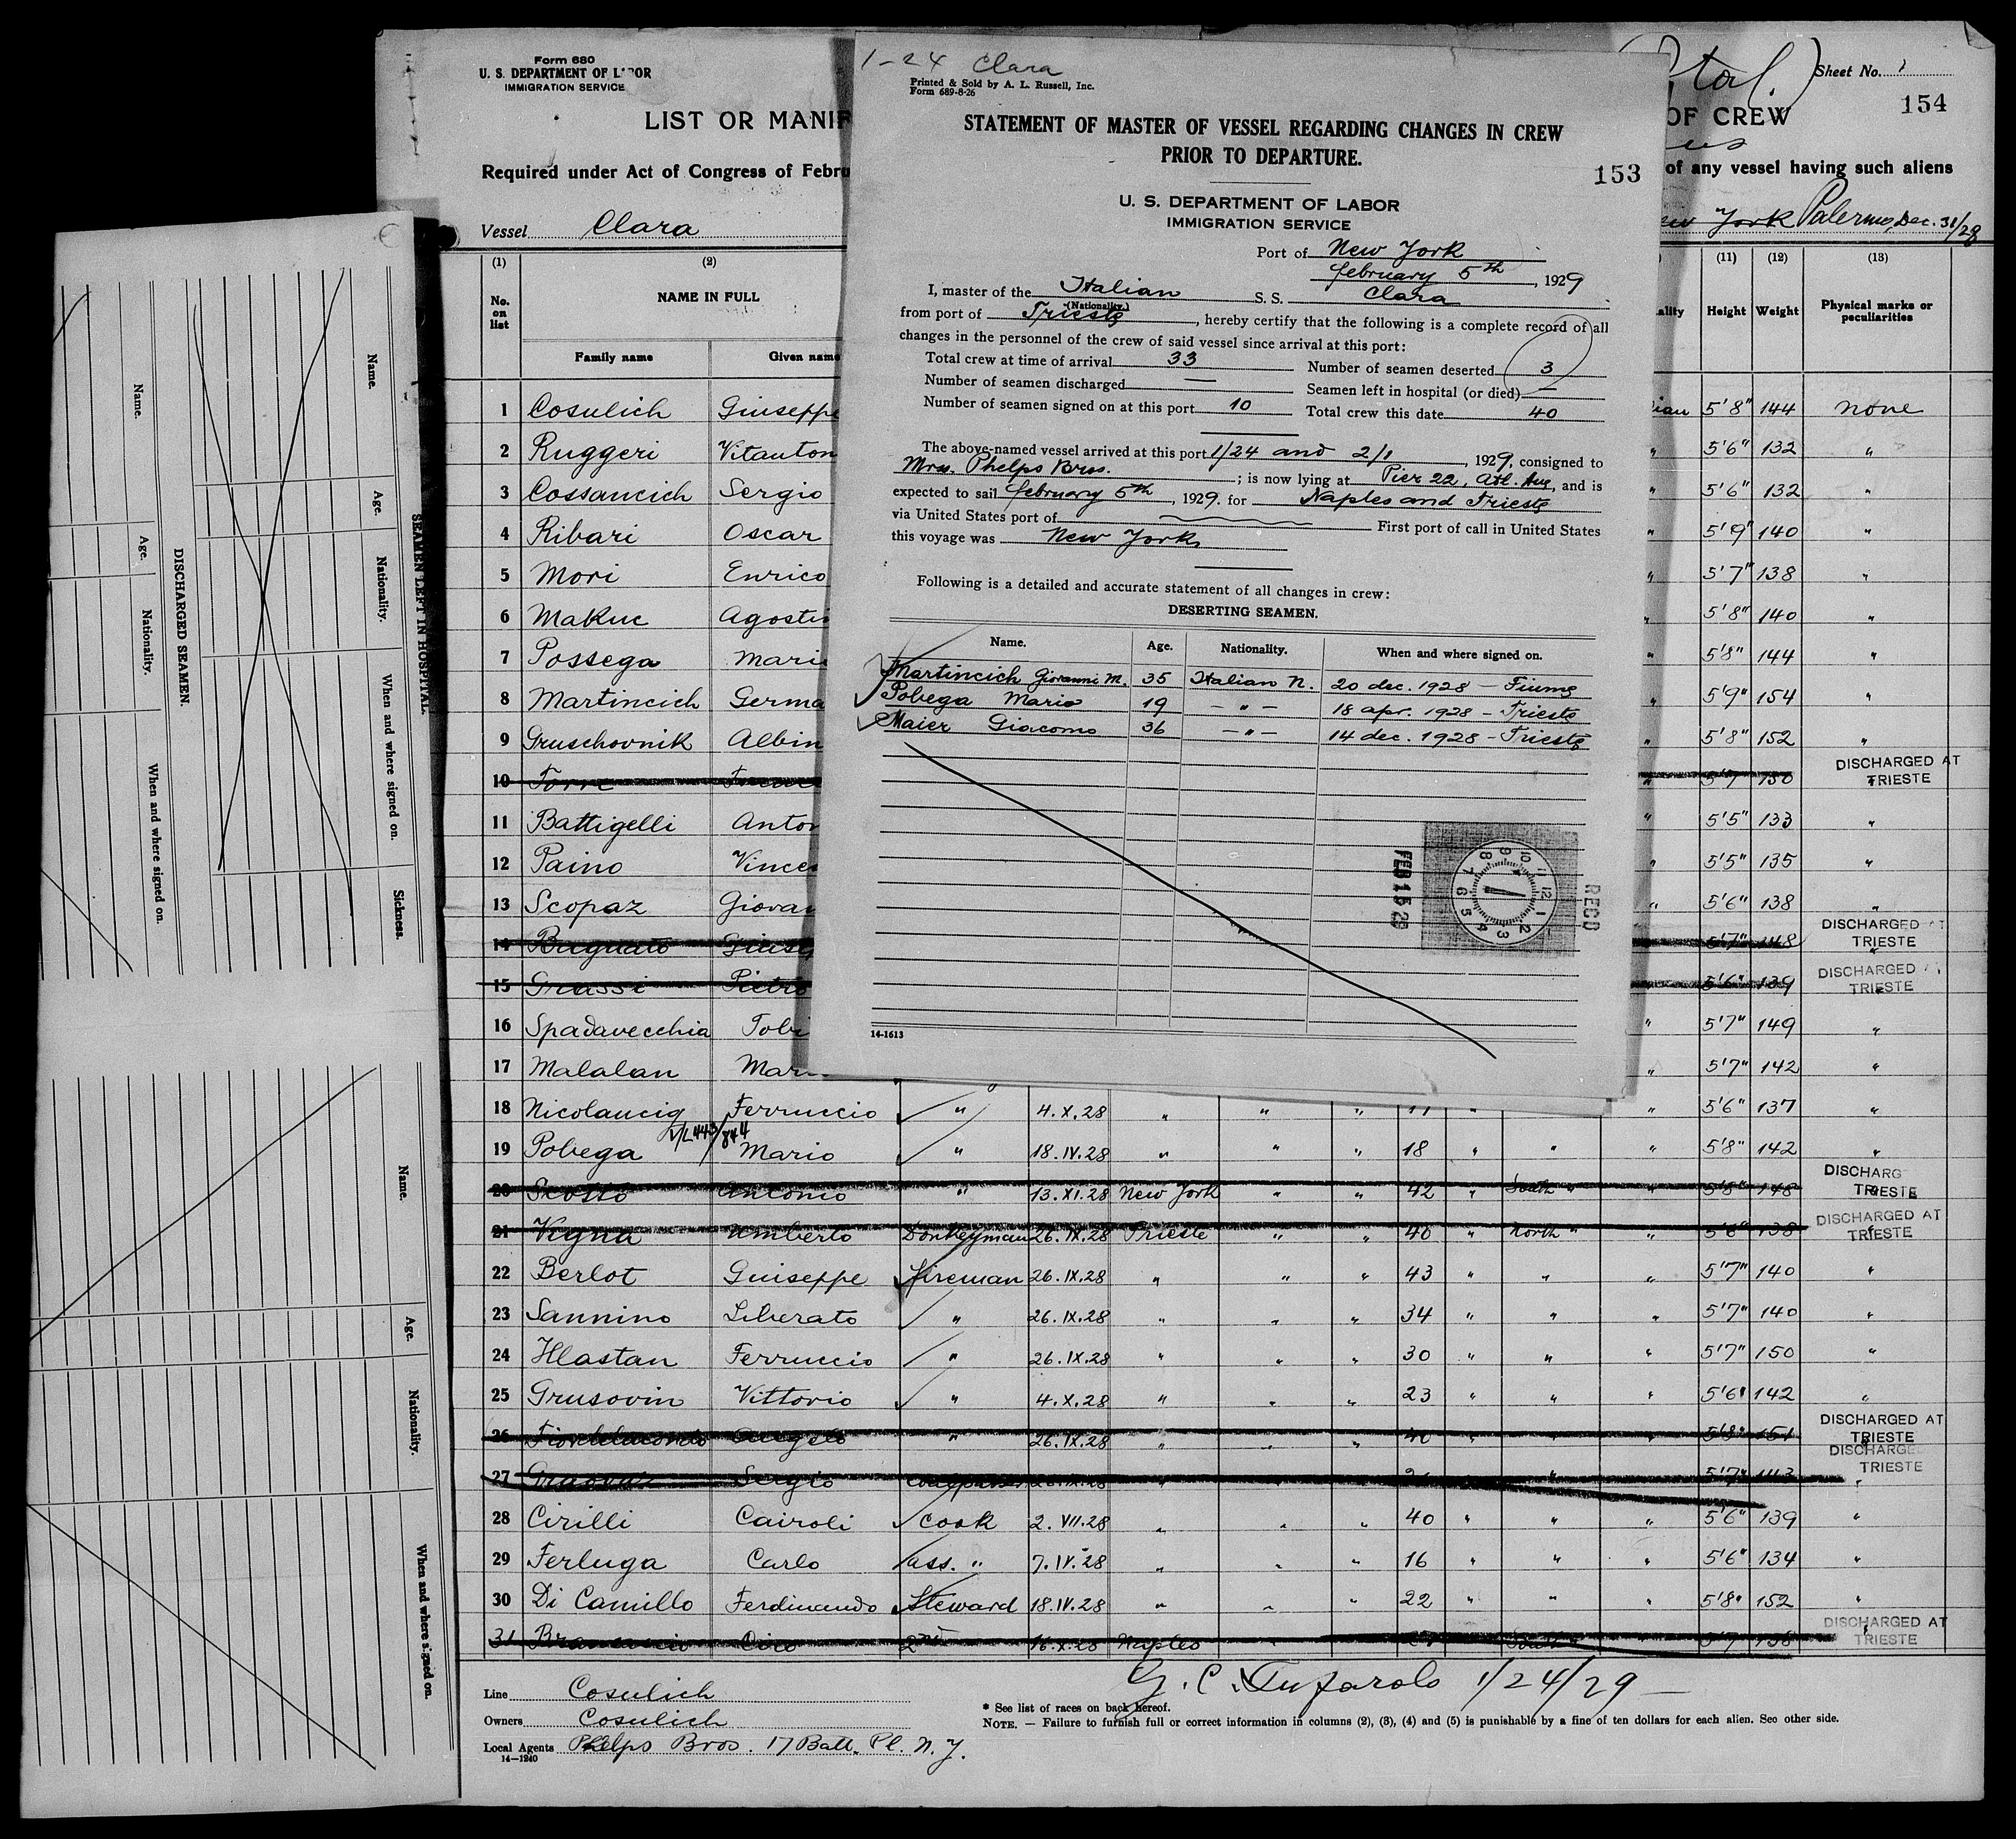 Form 680
U. S. DEPARTMENT OF LABOR
IMMIGRATION SERVICE
LIST OR MANIF
Required under Act of Congress of Febru
Vessel Clara
(1) (2)
No. on list
NAME IN FULL
Family name Given name
1 Cosulich Giuseppe
2 Ruggeri Vitanton
3 Cossancich Sergio
4 Ribari Oscar
5 Mori Enrico
6 Makuc Agosti
7 Possega Mari
8 Martincich Germa
9 Gruschovnik Albin
10 Torre
11 Battigelli Anton
12 Paino Vince
13 Scopaz Giovan
14 Brugnato Gius
15 Grassi Pietro
16 Spadavecchia Tobi
17 Malalan Mari
18 Nicolaucig Ferruccio " 4.X.28 " " " 17 " " 5'6" 137 "
V/L 443/844
19 Pobega Mario " 18.IV.28 " " " 18 " " " 5'8" 142 "
20 Scotto Antonio " 13.XI.28 New York " " 42 " South " " 5'8" 148 DISCHARG TRIESTE
21 Vigna Umberto Donkeyman 26.IX.28 Trieste " " 40 " North " " 5'6" 138 DISCHARGED AT TRIESTE
22 Berlot Guiseppe Fireman 26.IX.28 " " " 43 " " " 5'7" 140 "
23 Sannino Liberato " 26.IX.28 " " " 34 " " " 5'7" 140 "
24 Hlastan Ferruccio " 26.IX.28 " " " 30 " " " 5'7" 150 "
25 Grusovin Vittorio " 4.X.28 " " " 23 " " " 5'6" 142 "
26 Angelo " 26.IX.28 " " " 40 " " " 5'8" 151 DISCHARGED AT TRIESTE
27 Sergio Coalpasser 26.IX.28 " " 5'7" 143 DISCHARGE TRIESTE
28 Cirilli Cairoli Cook 2.VII.28 " " " 40 " " " 5'6" 139 "
29 Ferluga Carlo ass. " 7.IV.28 " " " 16 " " " 5'6" 134 "
30 Di Camillo Ferdinando Steward 18.IV.28 " " " 22 " " " 5'8" 152 "
31 Ciro 2nd 16.X.28 Naples South 5'7 138 DISCHARGED AT TRIESTE
Line Cosulich
Owners Cosulich
Local Agents Phelps Bros. 17 Batt. Pl. N.Y.
14—1240
G. C. Tufarolo 1/24/29
* See list of races on back hereof.
NOTE. — Failure to furnish full or correct information in columns (2), (3), (4) and (5) is punishable by a fine of ten dollars for each alien. See other side.
(Ital.) Sheet No. 1
OF CREW 154
of any vessel having such aliens
New York Palermo, Dec. 31/28
(11) (12) (13)
ality Height Weight Physical marks or peculiarities
ian 5'8" 144 none
" 5'6" 132 "
" 5'6" 132 "
" 5'9" 140 "
" 5'7" 138 "
" 5'8" 140 "
" 5'8" 144 "
" 5'9" 154 "
" 5'8" 152 "
" 5'7 150 DISCHARGED AT TRIESTE
" 5'5" 133 "
" 5'5" 135 "
" 5'6" 138 "
5'7" 148 DISCHARGED AT TRIESTE
5'6" 139 DISCHARGED AT TRIESTE
" 5'7" 149 "
" 5'7" 142 "
1-24 Clara
Printed & Sold by A. L. Russell, Inc.
Form 689-8-26
STATEMENT OF MASTER OF VESSEL REGARDING CHANGES IN CREW
PRIOR TO DEPARTURE.
153
U. S. DEPARTMENT OF LABOR
IMMIGRATION SERVICE
Port of New York
february 5th, 1929
I, master of the Italian S. S. Clara
(Nationality.)
from port of Trieste, hereby certify that the following is a complete record of all
changes in the personnel of the crew of said vessel since arrival at this port:
Total crew at time of arrival 33 Number of seamen deserted 3
Number of seamen discharged — Seamen left in hospital (or died) —
Number of seamen signed on at this port 10 Total crew this date 40
The above-named vessel arrived at this port 1/24 and 2/1, 1929, consigned to
Mrss. Phelps Bros. ; is now lying at Pier 22, Atl. Ave, and is
expected to sail february 5th, 1929, for Naples and Trieste
via United States port of First port of call in United States
this voyage was New York
Following is a detailed and accurate statement of all changes in crew:
DESERTING SEAMEN.
Name. Age. Nationality. When and where signed on.
Martincich Giovanni M. 35 Italian N. 20 dec. 1928 — Fiume
Pobega Mario 19 — " — 18 apr. 1928 — Trieste
Maier Giacomo 36 — " — 14 dec. 1928 — Trieste
RECD
FEB 15 29
12 1 2 3 4 5 6 7 8 9 10 11
14-1613
SEAMEN LEFT IN HOSPITAL.
Name. Age. Nationality. When and where signed on. Sickness.
DISCHARGED SEAMEN.
Name. Age. Nationality. When and where signed on.
Name. Age. Nationality. When and where signed on.